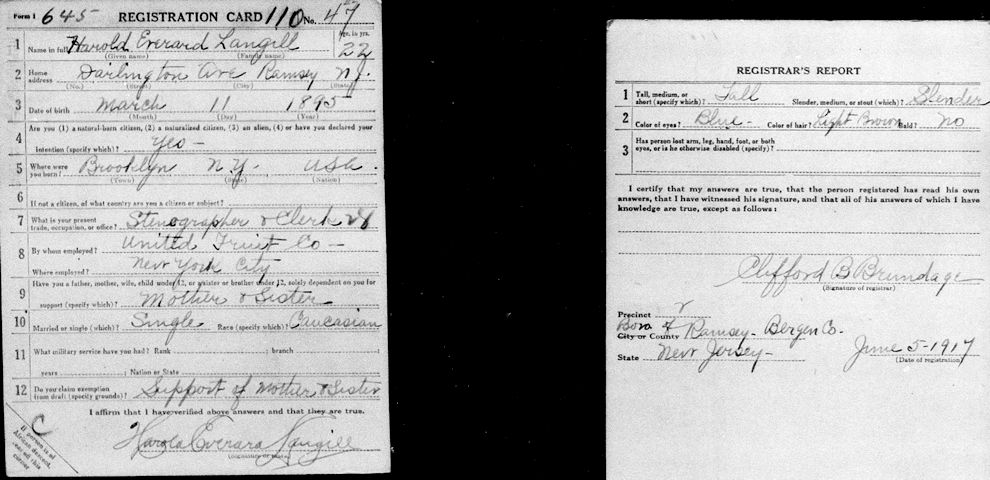 Form 1 645 REGISTRATION CARD 110 No. 47
1 Name in full Harold Everard Langill Age, in yrs. 22
(Given name) (Family name)
2 Home address Darlington Ave Ramsey N.J.
(No.) (Street) (City) (State)
3 Date of birth March 11 1895
(Month) (Day) (Year)
4 Are you (1) a natural-born citizen, (2) a naturalized citizen, (3) an alien, (4) or have you declared your
intention (specify which)? Yes -
5 Where were you born? Brooklyn N.Y. USA.
(Town) (State) (Nation)
6 If not a citizen, of what country are you a citizen or subject?
7 What is your present trade, occupation, or office? Stenographer & Clerk
8 By whom employed? United Fruit Co -
Where employed? New York City
9 Have you a father, mother, wife, child under 12, or a sister or brother under 12, solely dependent on you for
support (specify which)? Mother & Sister
10 Married or single (which)? Single Race (specify which)? Caucasian
11 What military service have you had? Rank ; branch
years ; Nation or State
12 Do you claim exemption from draft (specify grounds)? Support of Mother & Sister
I affirm that I have verified above answers and that they are true.
Harold Everard Langill
(Signature or mark)
C
If person is of
African descent,
tear off this
corner
REGISTRAR'S REPORT
1 Tall, medium, or short (specify which)? Tall Slender, medium, or stout (which)? Slender
2 Color of eyes? Blue - Color of hair? Light Brown Bald? No
3 Has person lost arm, leg, hand, foot, or both
eyes, or is he otherwise disabled (specify)?
I certify that my answers are true, that the person registered has read his own
answers, that I have witnessed his signature, and that all of his answers of which I have
knowledge are true, except as follows:
Clifford B Brundage
(Signature of registrar)
Precinct
Boro of
City or County Ramsey - Bergen Co -
State New Jersey - June 5 - 1917
(Date of registration)